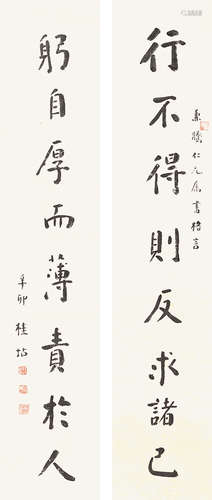 行不得則反求諸己
仁兄屬書格言
躬自厚而薄責於人
辛卯 桂坫